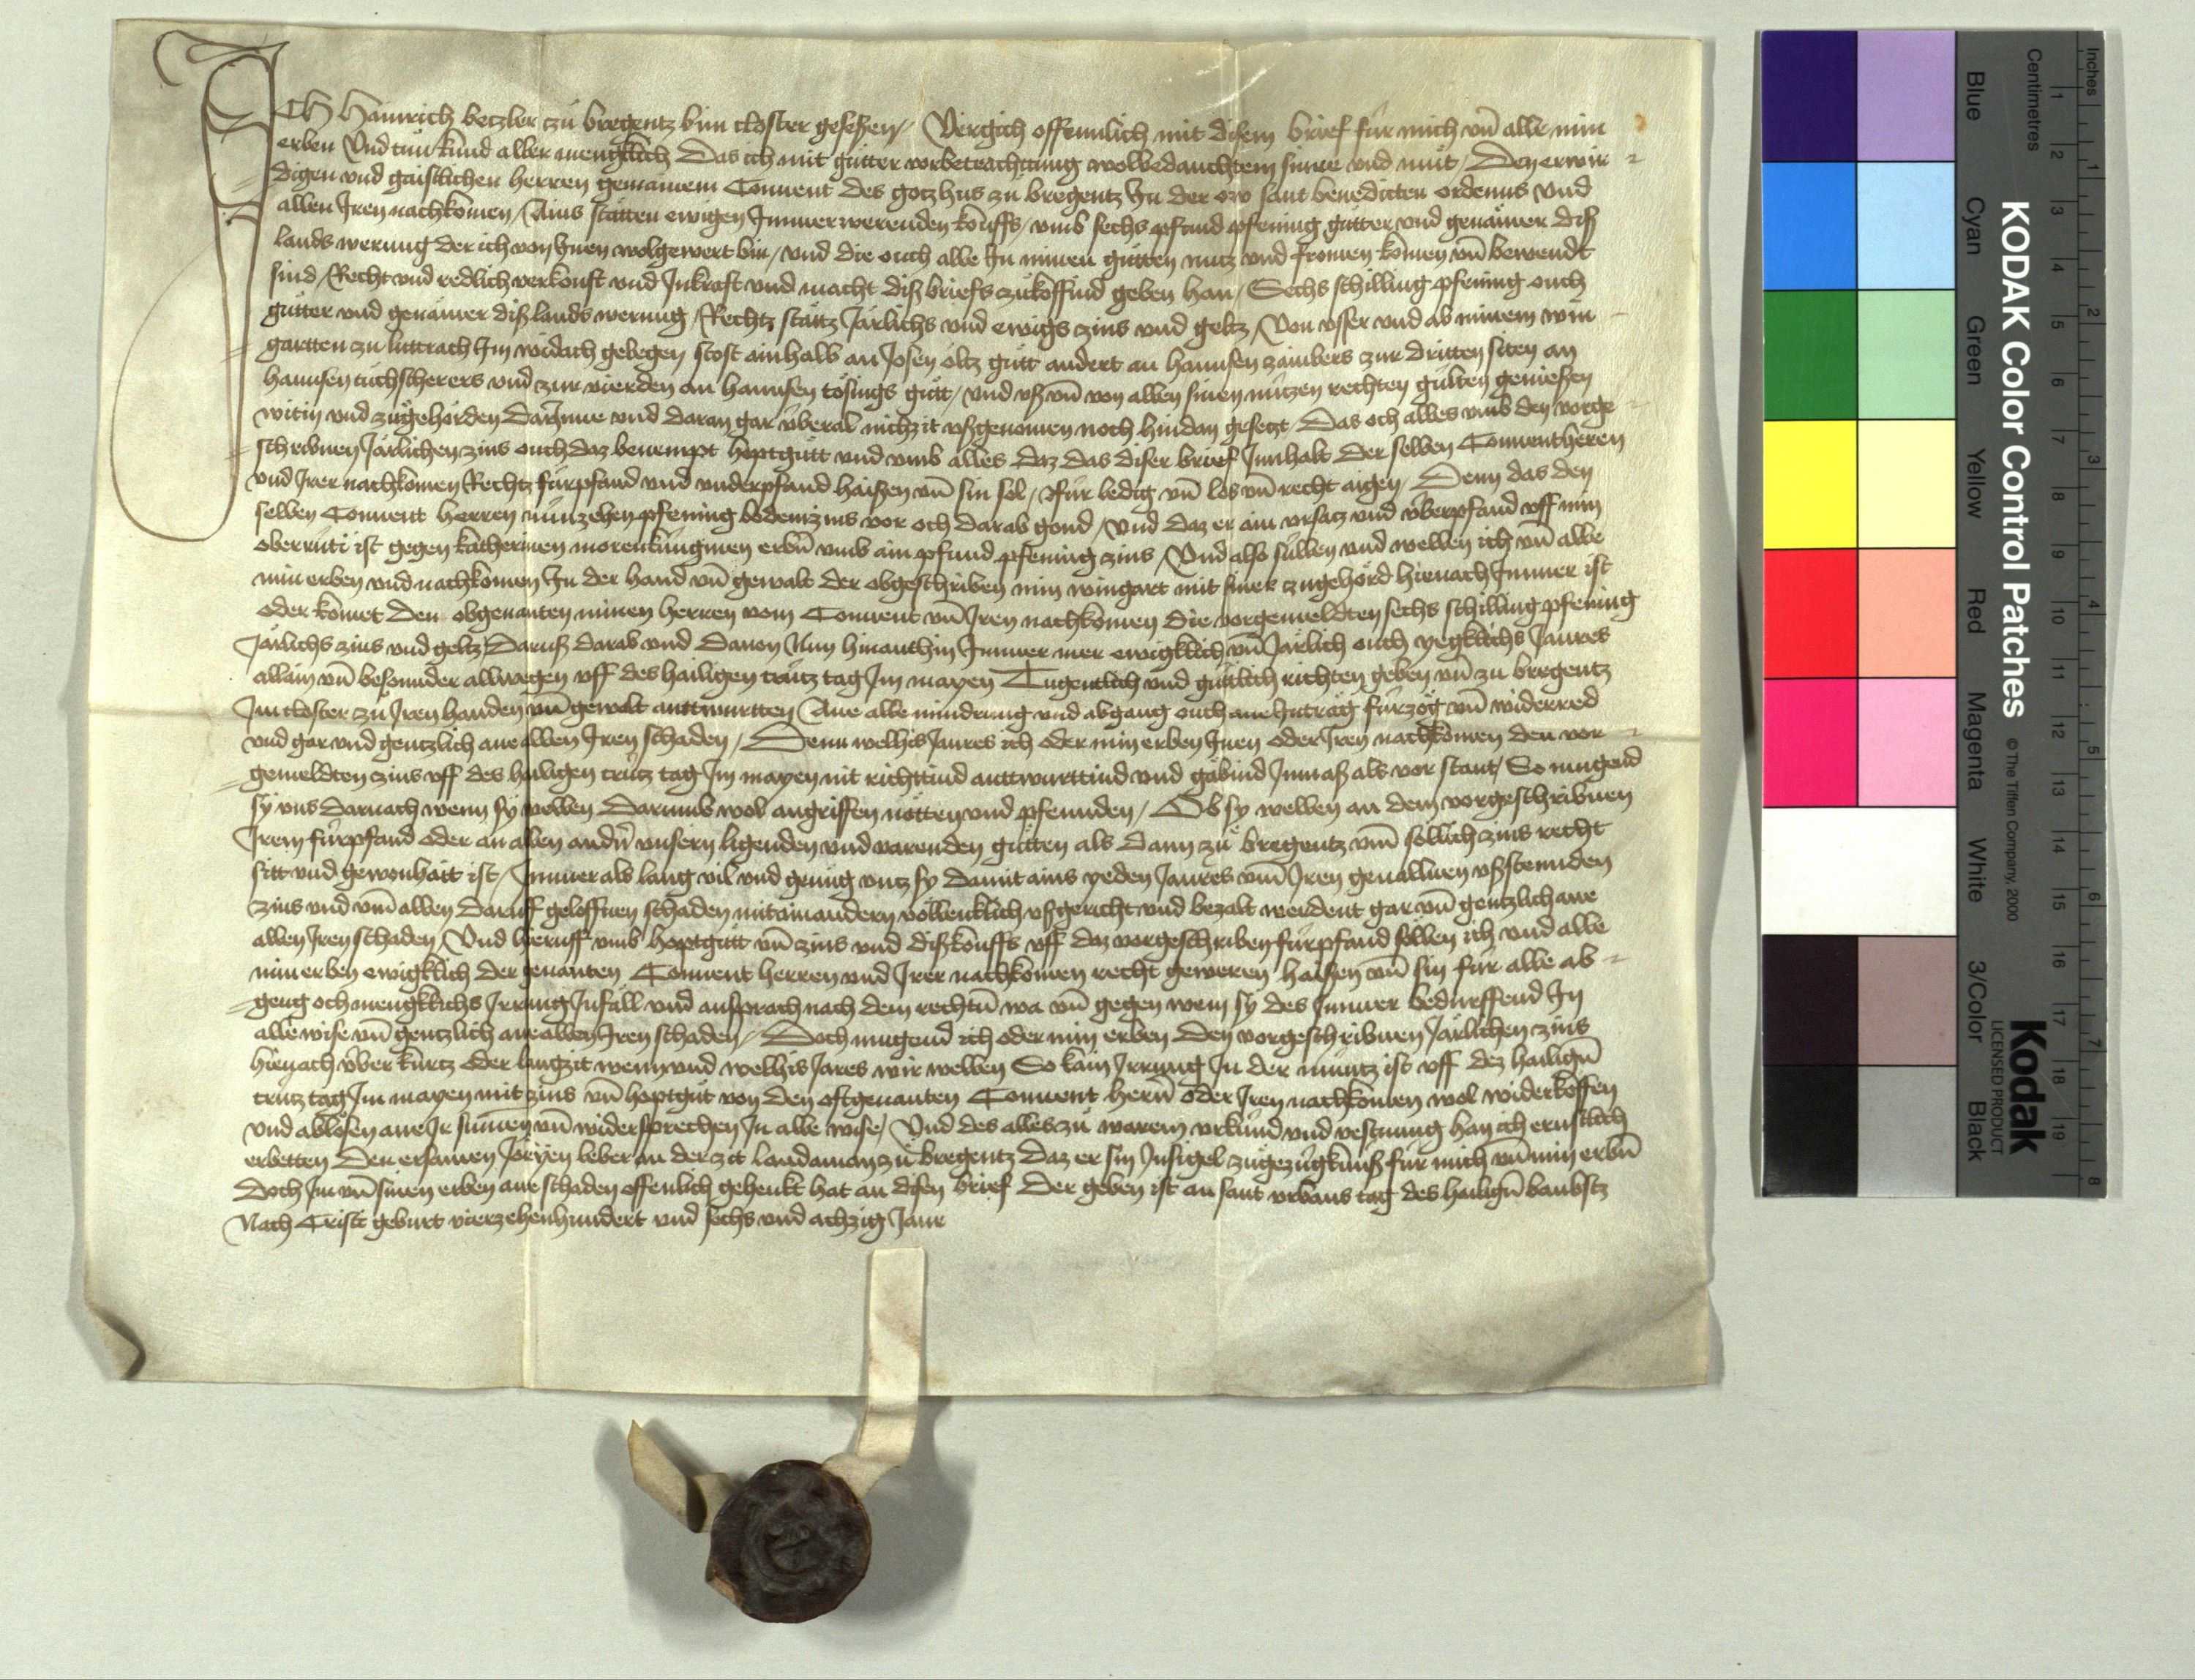 Ich Hainrich betzler zů bregentz bim closter geseßen / Vergich offennlich mit disem brief für mich vn̄ alle min
erben Vnd tůn kund aller mengklich Das ich mit gůtter vorbetrachtung wolbedauchtem sinne vnd můt / Den erwir
digen vnd gaistlichen herren gemainem Conuent des gotzhus zů bregentz In der ow sant benedicten ordenns vnd
allen Iren nachkomen / Ains stätten ewigen Immerwerenden kouffs / vmb sechs pfund pfening gůtter vnd genämer diß
lands werung der ich von Inen wolgewert bin / vnd die ouch alle In minen gůtten nutz vnd fromen komen vn̄ bewendt
sind / Recht vnd redlich verkouft vnd Inkraft vnd macht diß briefs zůkoffind geben han / Sechs schilling pfening ouch
gůtter vnd genämer diß lands werung / Rechtz stättz Järlichs vnd ewigs zins vnd geltz / Von vsser vnd ab minem win
gartten zu luttrach Im widach gelegen stost ainhalb an Josen öltz gůtt andert an hannsen zaimbers zur dritten siten an
hannsen tůchscherers vnd zur vierden an hannsen tösings gůtt / vnd vß vn̄ von allen sinen nützen rechten gülten genießen
witin vnd zůgehörden Darinne vnd daran gar überal nichzit vßgenomen noch hindan gesetzt / Das och alles vmb den vorge
schribnen Järlichen zins ouch daz benempt hoptgůtt vnd vmb alles daz das diser brief Innhalt Der selben Conuentherren
vnd Irer nachkomen Rechtz fürpfand vnd vnderpfand haißen vn̄ sin sol / Für ledig vn̄ los vn̄ recht aigen / Denn das den
selben Conuent herren nünzehen pfening bodenzins vor och darab gond / vnd daz er ain vrsatz vnd überpfand vff min
oberrüti ist gegen katherinen morenkünginen erbn̄ vmb ain pfund pfening zins / Vnd also süllen vnd wellen ich vn̄ alle
min erben vnd nachkomen In der hand vn̄ gewalt der obgeschriben min wingart mit siner zugehörd hienach Immer ist
oder komet Den obgenanten minen herren vom Conuent vn̄ Iren nachkomen Die vorgemeldten sechs schilling pfening
Järlichs zins vnd geltz Daruß darab vnd Dauon Nun hinanthin Immer mer ewigklich vn̄ Järlich ouch yegklichs Jaures
allain vn̄ besonnder allwegen vff des hailigen crütz tag Im mayen Tugentlich vnd gůtlich richten geben vn̄ zu bregentz
Im closter zů Iren handen vn̄ gewalt anttwurtten / Ane alle mindrung vnd abgang ouch ane Intrag fürzög vn̄ widerred
vnd gar vnd gentzlich ane allen Iren schaden / Denn welhis Jaures ich oder min erben Inen oder Iren nachkomen den vor
gemeldten zins vff des hailigen crütz tag Im mayen nit richttind anttwurttind vnd gäbind Inmaß als vor staut / So mugend
sy vns darnach wenn sy wellen Darumb wol angriffen nötten vnd pfennden / Ob sy wellen an dem vorgeschribnen
Irem fürpfand oder an allen andn̄ vnsern ligenden vnd varenden gůtten als dann zů bregentz vm̄ söllich zins recht
sitt vnd gewonhait ist / Immer als lang vil vnd genůg vntz sy damit ains yeden Jaures vm̄ Iren geuallnen vßstennden
zins vnd vm̄ allen daruff geloffnen schaden mitainandern vollenklich vßgericht vnd bezalt werdent gar vn̄ gentzlich ane
allen Iren schaden / Vnd hieruff vmb hoptgůtt vn̄ zins vnd diß kouffs vff daz vorgeschriben fürpfand söllen ich vnd alle
min erben ewigklich der genanten Conuent herren vnd Irer nachkomen recht geweren haißen vn̄ sin für alle ab
geng och mengklichs Irrung Infäll vnd ansprach nach dem rechtn̄ wa vn̄ gegen wem sy des Immer bedurffend In
alle wise vn̄ gentzlich ane allen Iren schaden / Doch mugend ich oder min erben Den vorgeschribnen Järlichen zins
hienach über kurtz oder langzit wenn vnd welhis Jares wir wellen So kain Irrung In der müntz ist vff dez hailign̄
crütz tag Im mayen mit zins vn̄ hoptgůt von den oftgenanten Conuent hern̄ oder Iren nachkomen wol widerkoffen
vnd ablösen ane Ir sumen vn̄ widersprechen In alle wise / Vnd des alles zů warem vrkünd vnd vestnung han ich ernstlich
erbetten Den ersamen Jöryen leber an der zit landaman zů bregentz daz er sin Insigel zůgezügknuß für mich vn̄ min erbn̄
Doch Im vn̄ sinen erben ane schaden offenlich gehenkt hat an disen brief Der geben ist an sant vrbans tag des hailign̄ baubstz
Nach Cristi geburt vierzehenhundert vnd sechs vnd achzig Jaure
KODAK Color Control Patches
© The Tiffen Company, 2000
Kodak
LICENSED PRODUCT
Inches
Centimetres
Blue Cyan Green Yellow Red Magenta White 3/Color Black
1 2 3 4 5 6 7 8 9 10 11 12 13 14 15 16 17 18 19
1 2 3 4 5 6 7 8